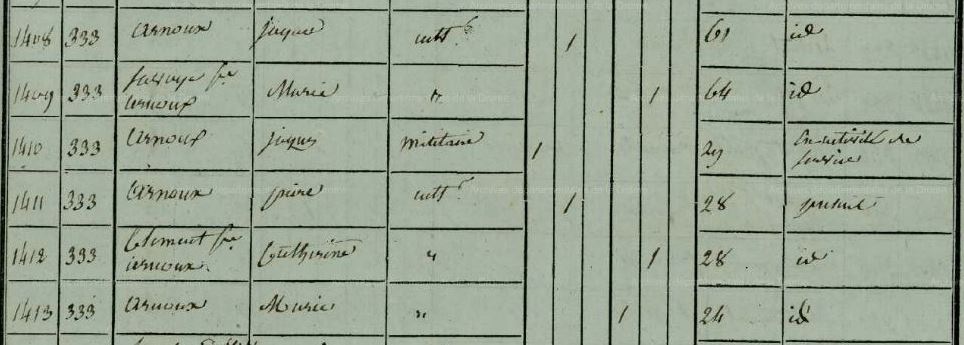 1408 333 arnoux jaques cultr 1 61 id
1409 333 fe
arnoux Marie " 1 64 id
1410 333 arnoux jaques militaire 1 29 en activité de
service
1411 333 arnoux pierre cultr 1 28 présent
1412 333 Clément fe
arnoux Catherine " 1 28 id
1413 333 arnoux Marie " 1 24 id